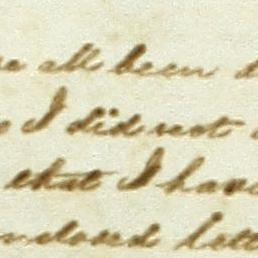 all been
I did not
that I have
enclosed lett